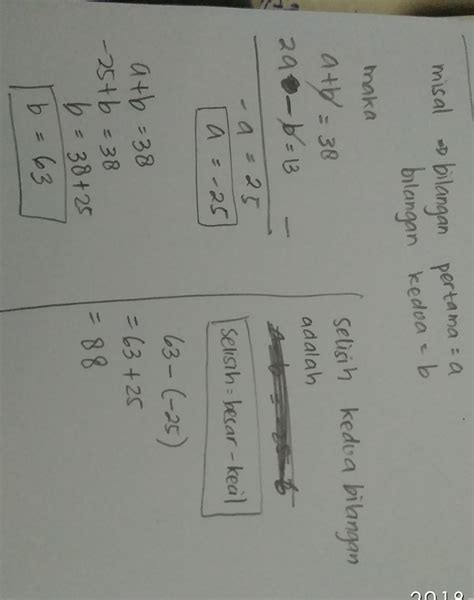 misal => bilangan pertama = a
bilangan kedua = b
maka
a+b = 38
2a - b = 13 -
-a = 25
a = -25
a+b = 38
-25+b = 38
b = 38+25
b = 63
selisih kedua bilangan
adalah
selisih = besar - kecil
63 - (-25)
= 63 + 25
= 88
2018